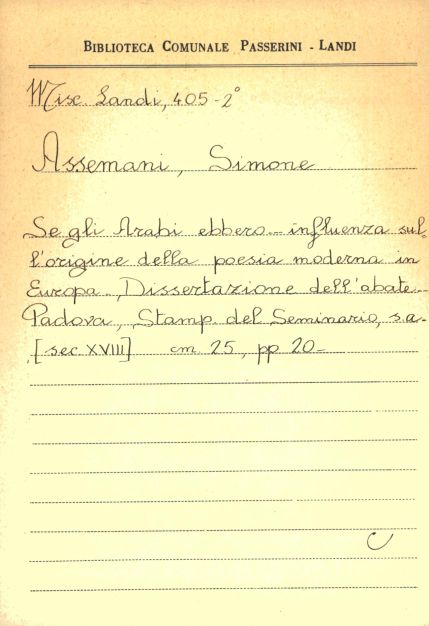 BIBLIOTECA COMUNALE PASSERINI - LANDI
Misc. Landi, 405-2°
Assemani, Simone
Se gli Arabi ebbero influenza sul-
l'origine della poesia moderna in
Europa., Dissertazione dell'abate...
Padova, Stamp. del Seminario, s.a.
[sec. XVIII] cm. 25, pp. 20-
C